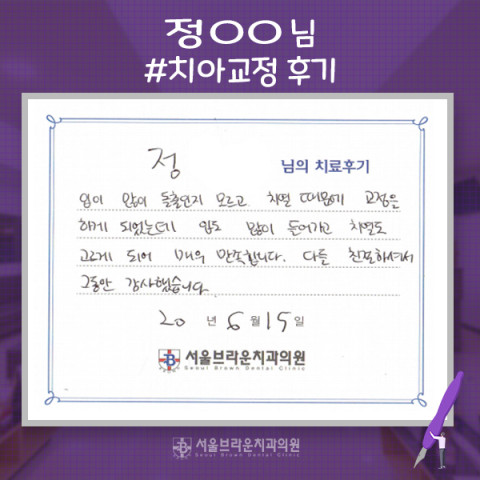 정○○님
#치아교정 후기
정 님의 치료후기
입이 많이 돌출인지 모르고 치열 때문에 교정을
하게 되었는데 입도 많이 들어가고 치열도
고르게 되어 매우 만족합니다. 다들 친절하셔서
그동안 감사했습니다.
20 년 6 월 15 일
서울브라운치과의원
Seoul Brown Dental Clinic
서울브라운치과의원
Seoul Brown Dental Clinic